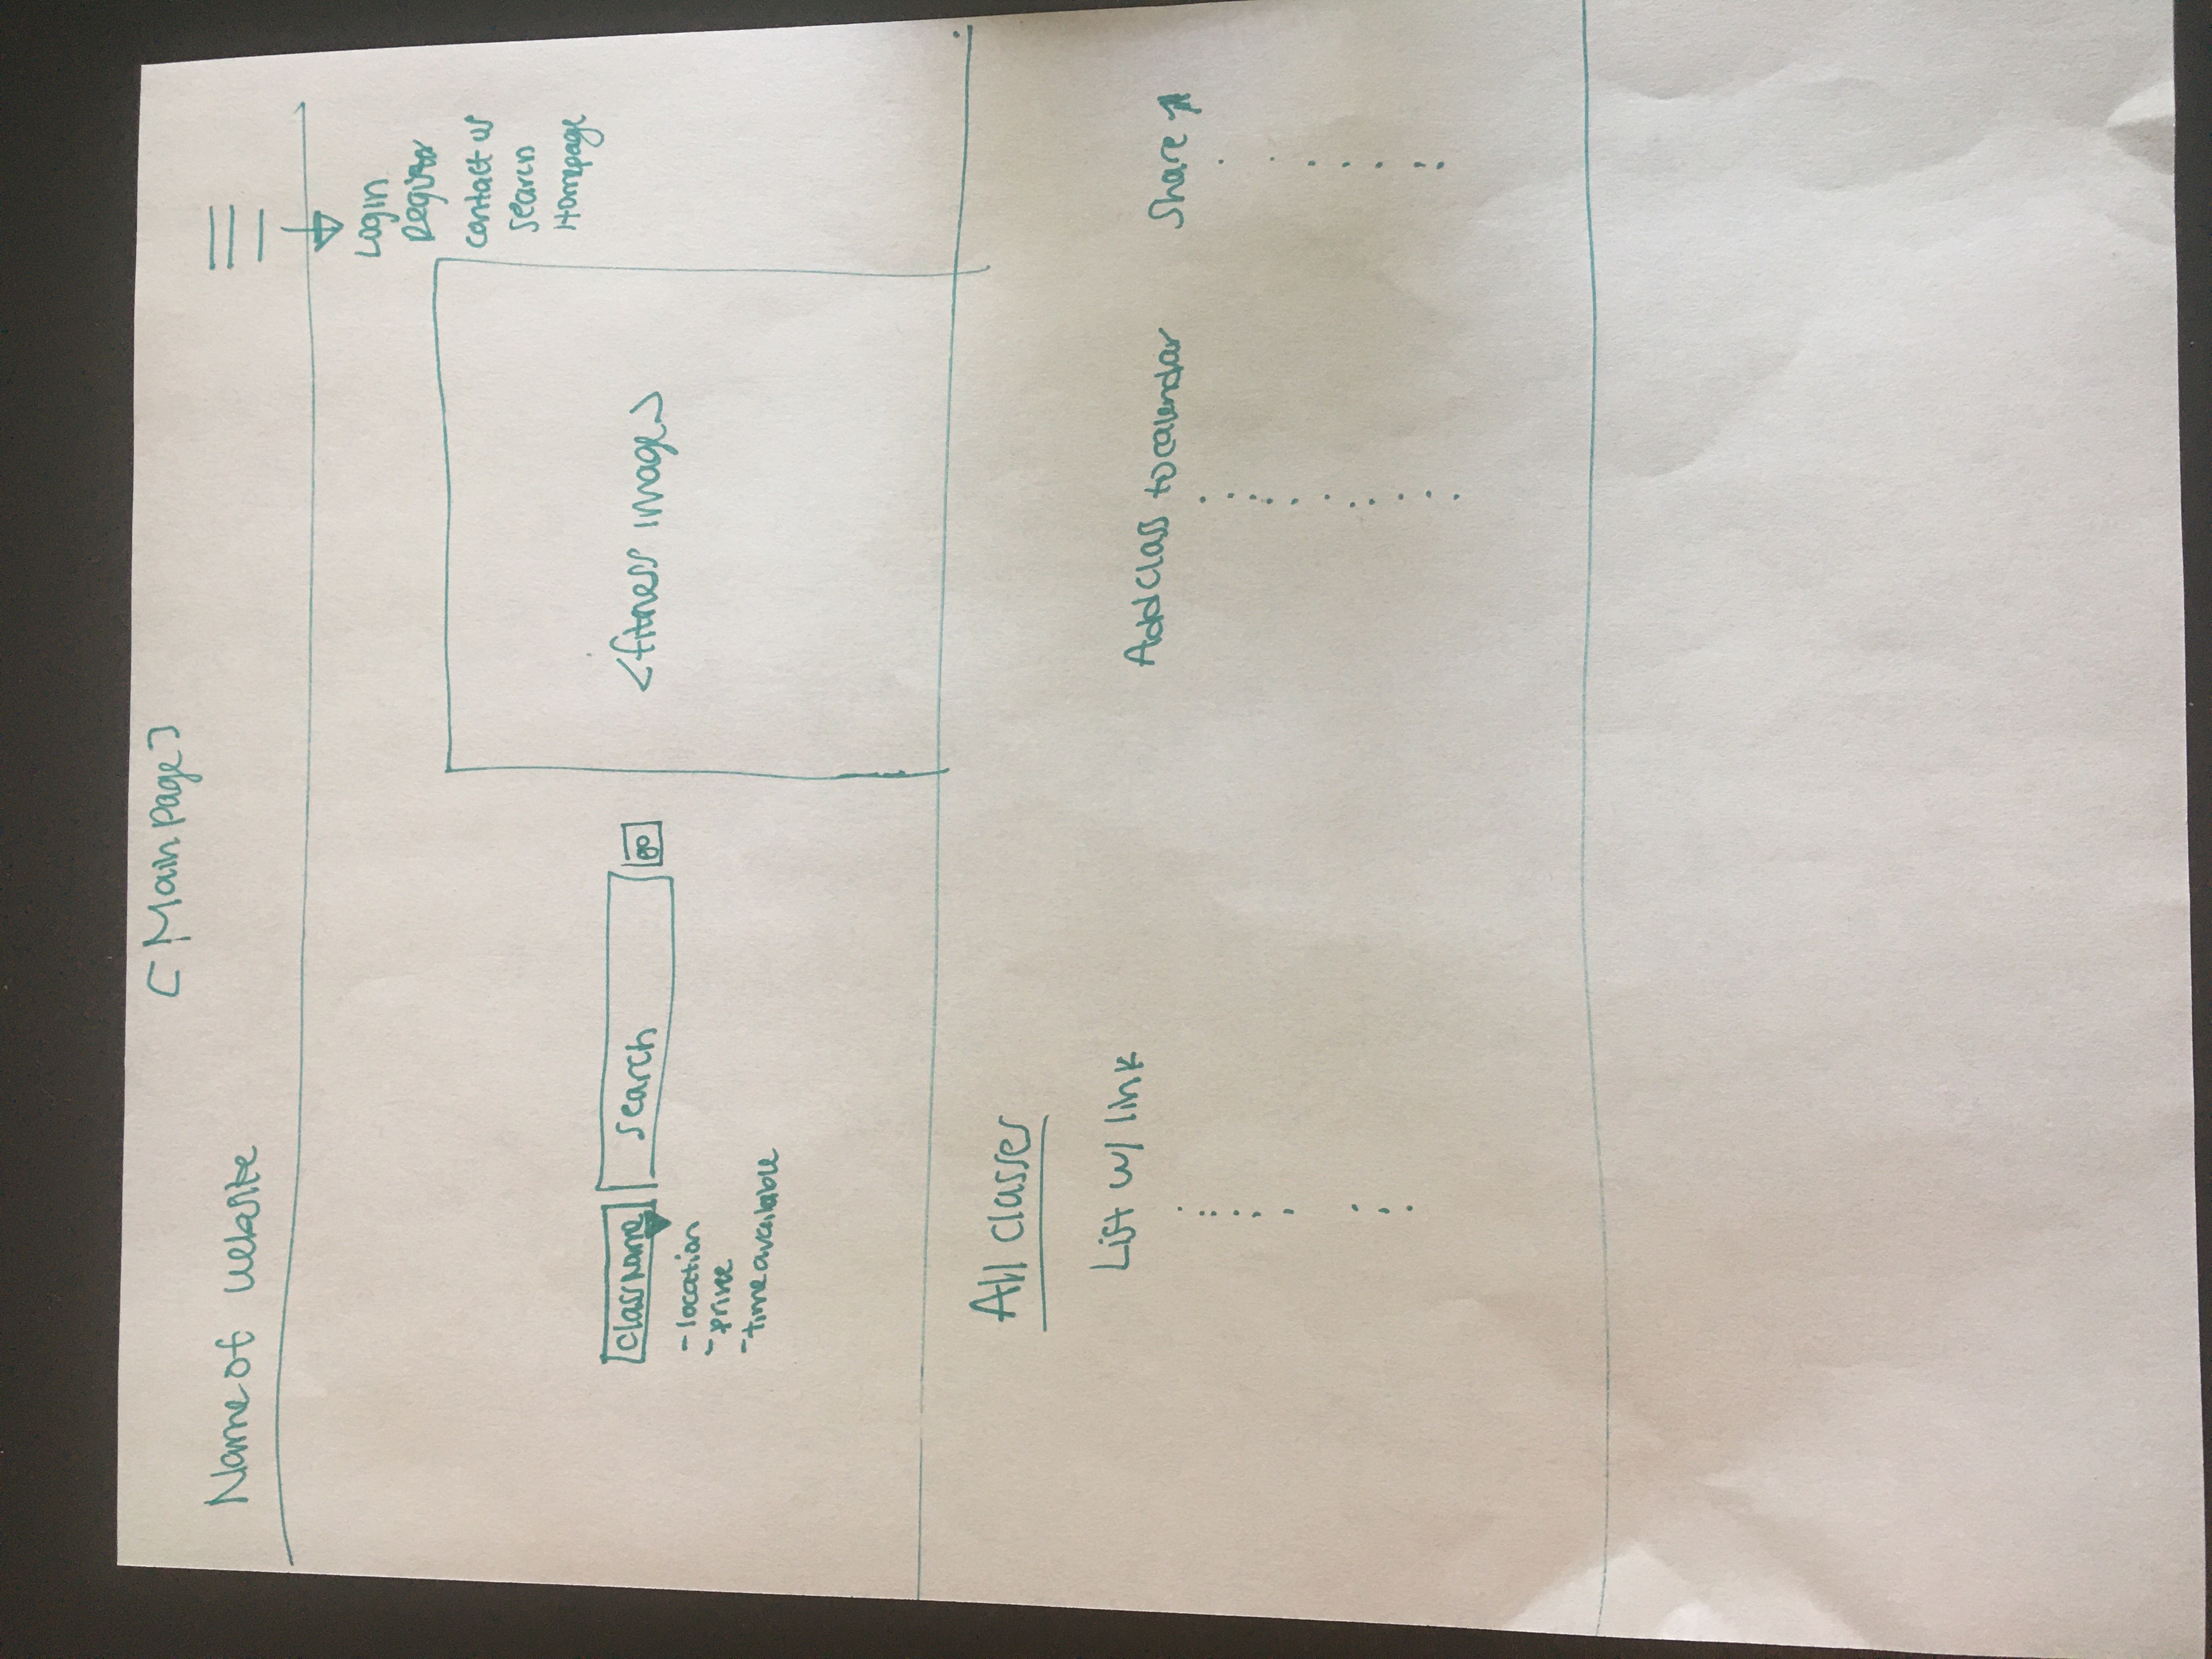 [Main page]
Name of website
Login
Register
contact us
search
Homepage
class name
search
go
<fitness image>
- location
- price
- time available
All classes
List w/ link
Add class to calendar
Share